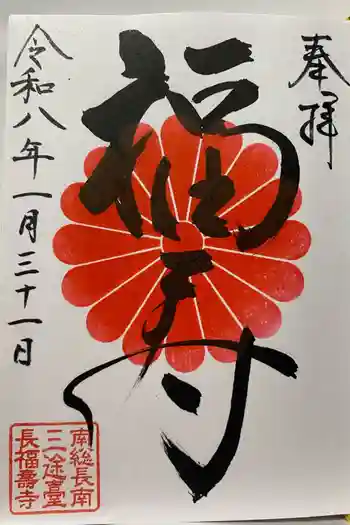 奉拝
福寿
令和八年一月三十一日
南総長南
三途臺
長福壽寺